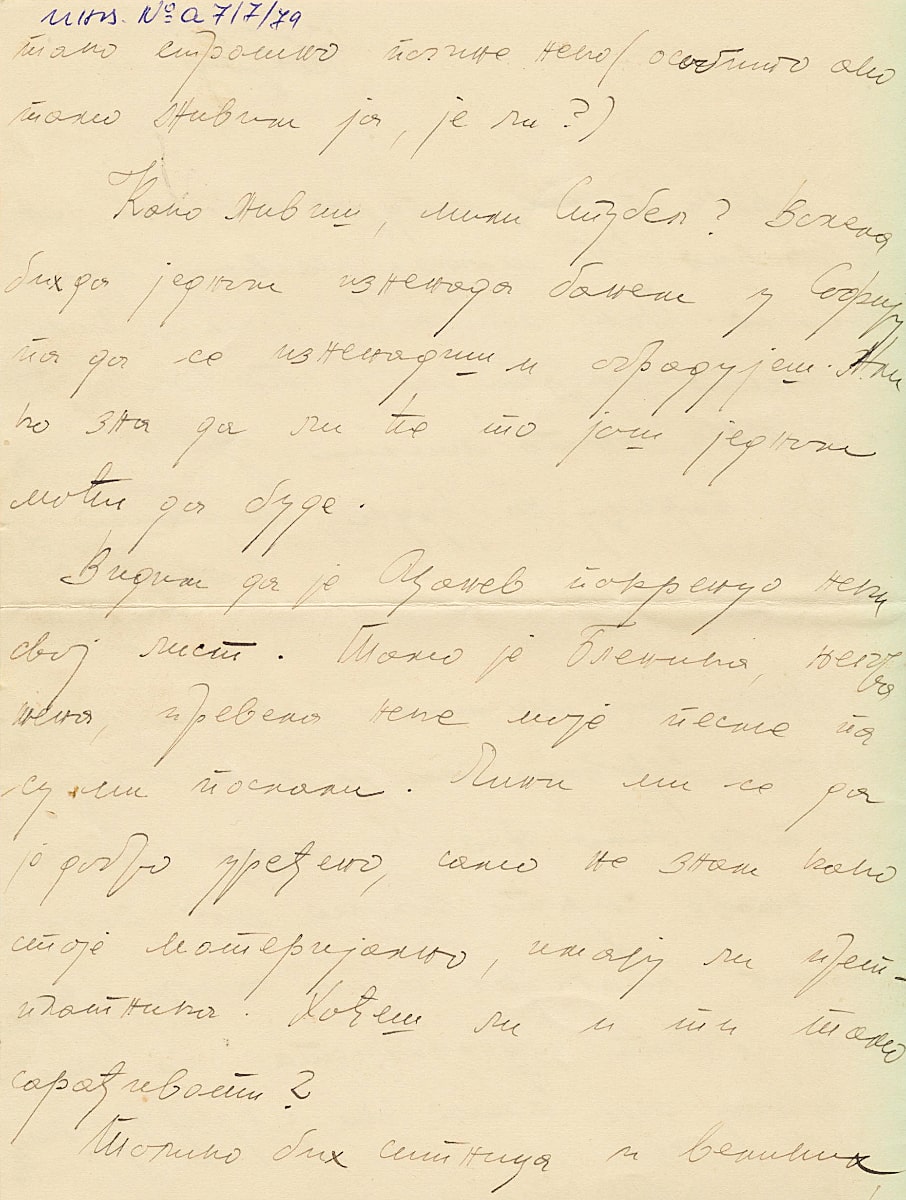 инв. № а 7/7/79
тако страшно почине неко (особито ако
тамо живим ја, је ли?)
Како живиш, мили Стубел? Волела
бих да једном изненада банем у Софију
па да се изненадиш и обрадујеш. Али
ко зна да ли ће то још једном
моћи да буде.
Видим да је Цанев покренуо неки
свој лист. Тамо је Бленика, његова
жена, превела неке моје песме па
су ми послали. Чини ми се да
је добро уређено, само не знам како
стоје материјално, имају ли прет-
платника. Хоћеш ли и ти тамо
сарађивати?
Толико бих ситница и великих